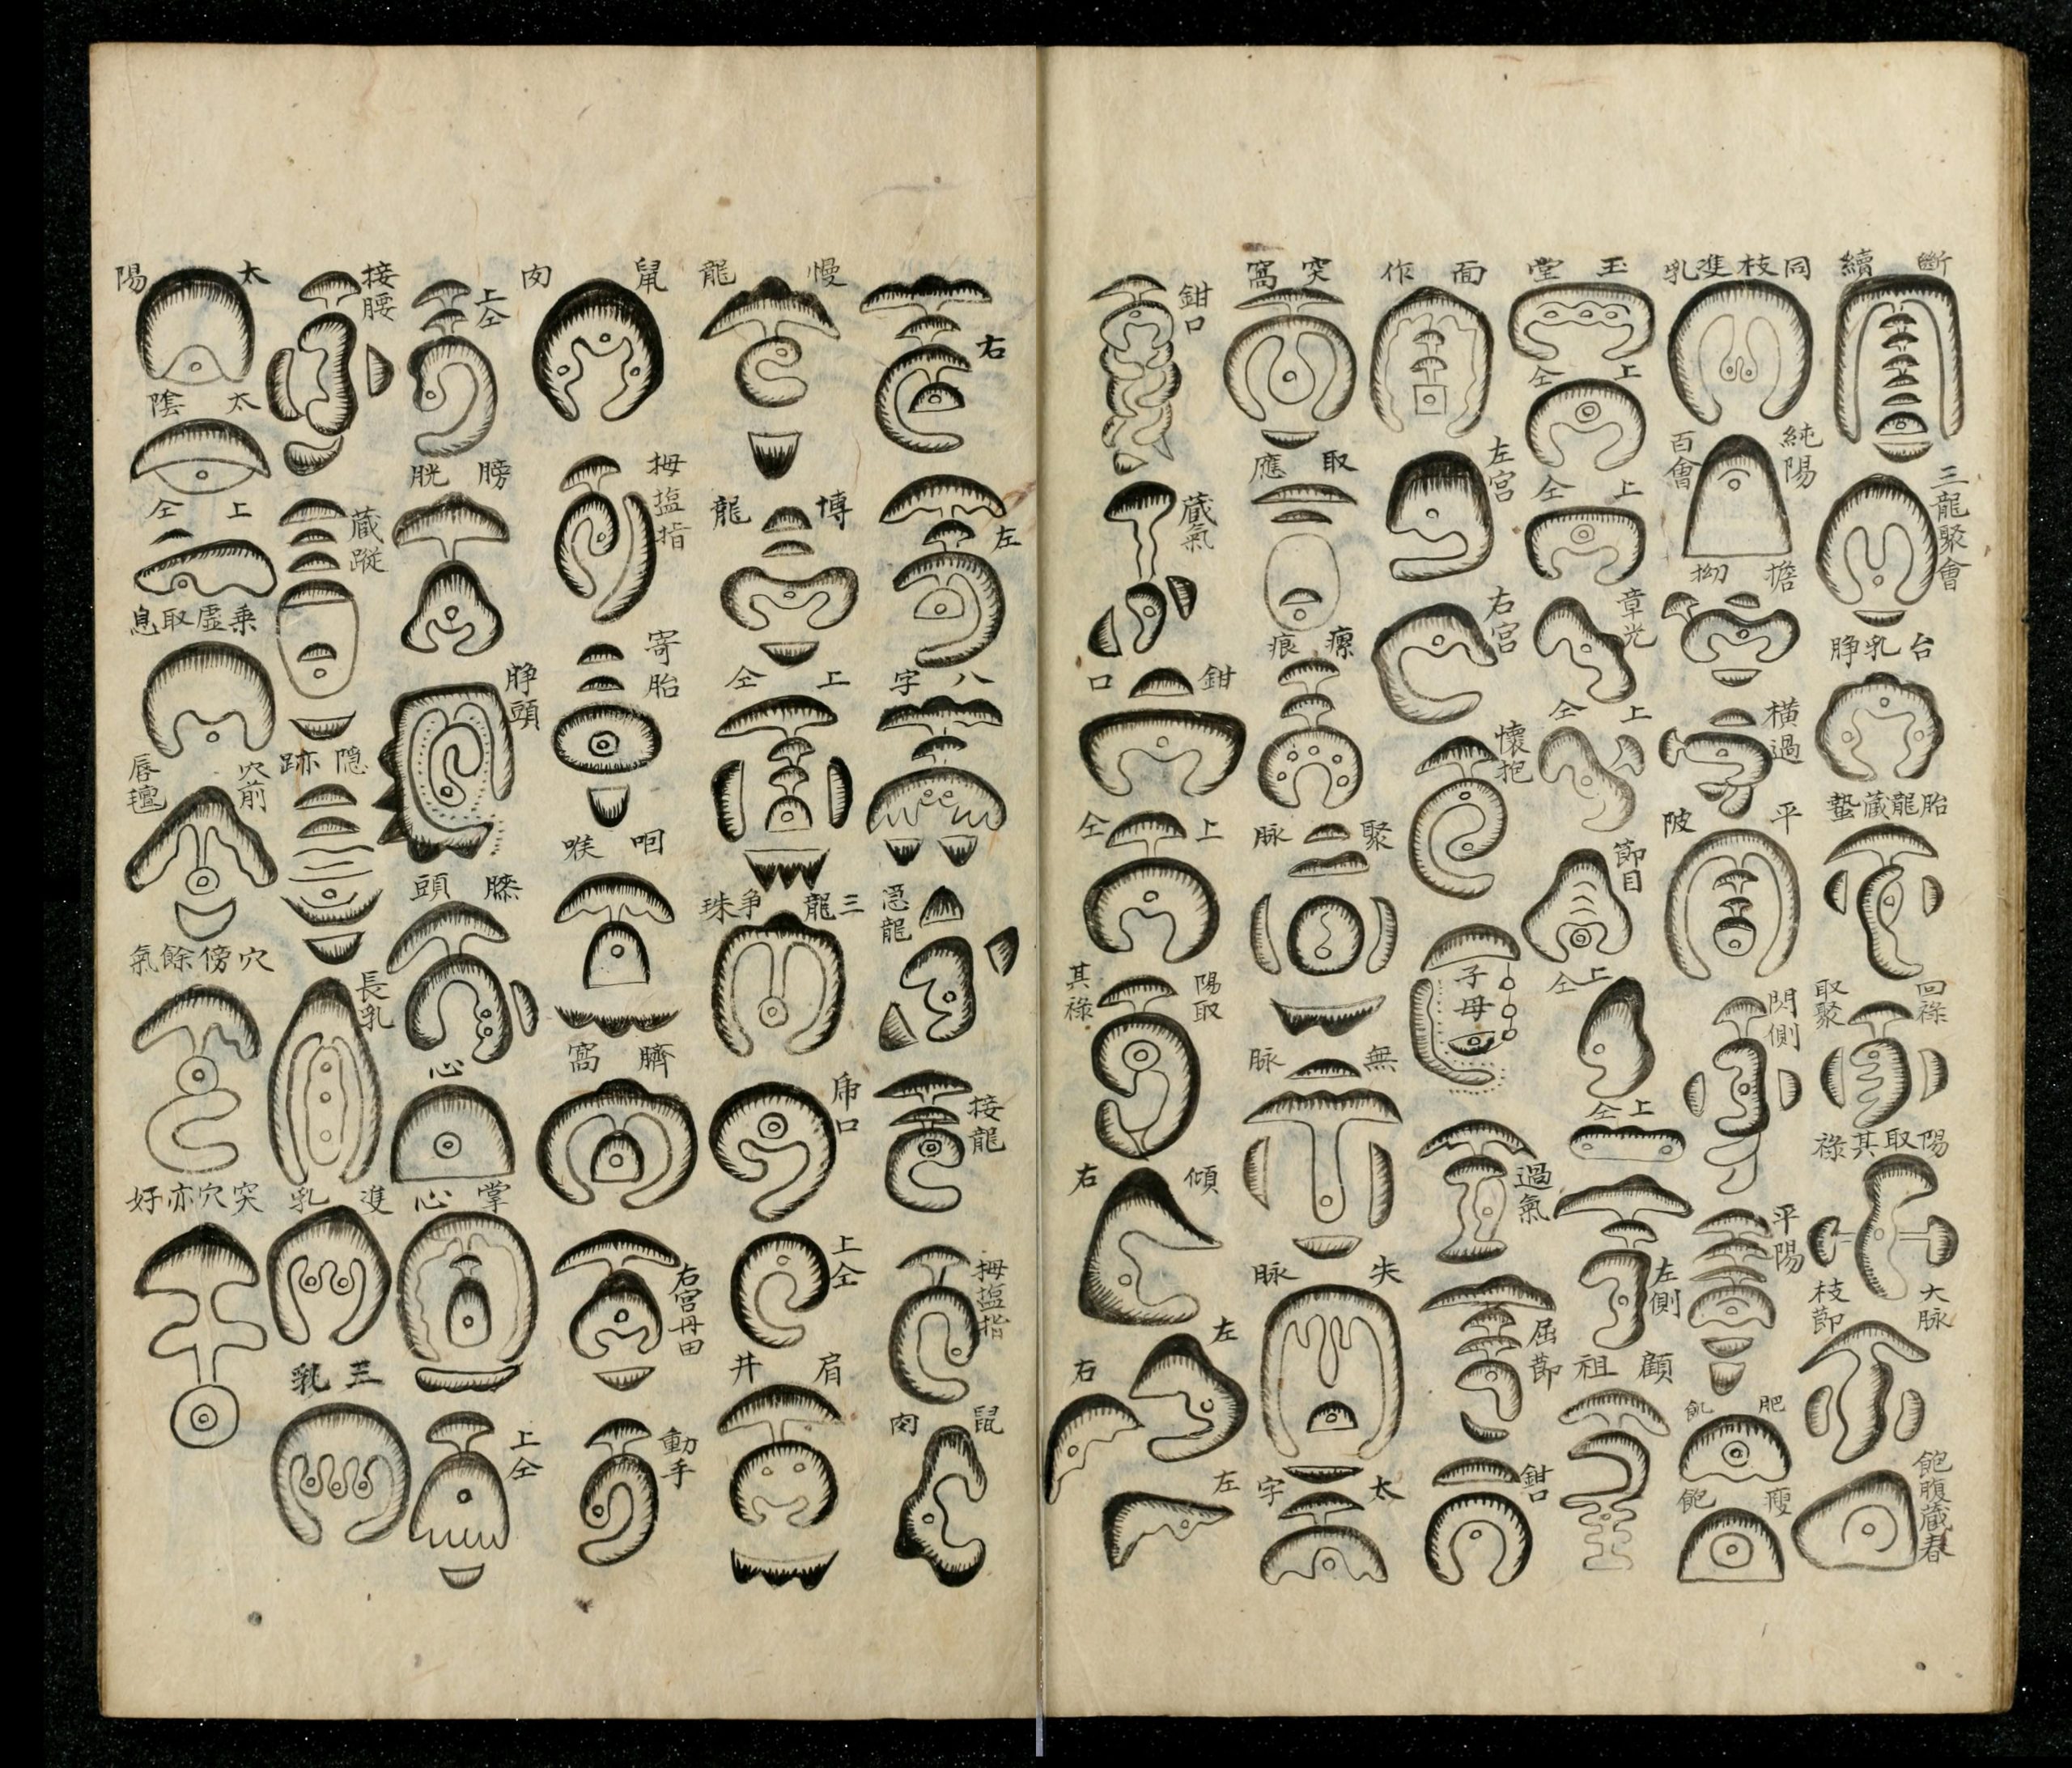 斷續
三龍聚會
台乳脖
胎龍藏蟄
回祿取聚
陽取其祿
大脉枝節
飽腹藏春
同枝進乳
純陽百會
擔拗
橫過
平陂
閃側
平陽
肥飢
瘦飽
玉堂
上仝
上仝
章光
上仝
節目
上仝
上仝
左側
顧祖
面作
左宮
右宮
懷抱
子母
過氣
屈節
鉗口
突窩
取應
瘝痕
聚脉
無脉
失脉
太字
鉗口
藏氣
鉗口
上仝
陽取其祿
傾右
左
右
左
右
左
八字
忍龍
接龍
拇塩指
鼠肉
慢龍
博龍
上仝
三龍爭珠
帍口
上仝
肩井
鼠肉
拇塩指
寄胎
咽喉
臍窩
右宮丹田
動手
上仝
膀胱
脖頭
膝頭
心
掌心
上仝
接腰
藏蹤
隱跡
長乳
進乳
三乳
太陽
太陰
上仝
乘虛取息
穴前唇氊
穴傍餘氣
突穴亦好